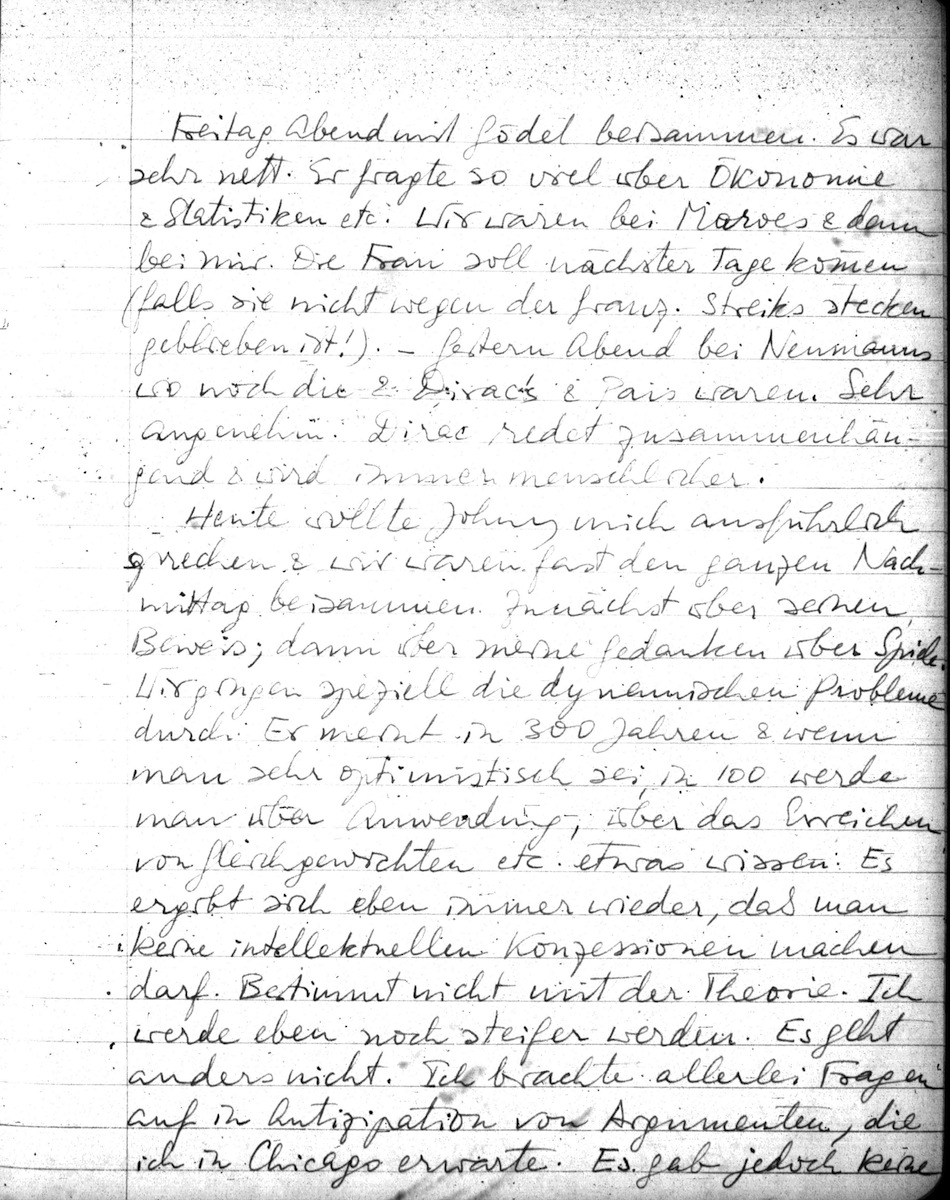 Freitag Abend mit Gödel beisammen. Es war
sehr nett. Er fragte so viel über Ökonomie
& Statistiken etc. Wir waren bei & dann
bei mir. Die Frau soll nächster Tage komen
(falls sie nicht wegen der franz. Streiks stecken
geblieben ist!). – Gestern Abend bei Neumanns
wo noch die & Dirac's & Pais waren. Sehr
angenehm. Dirac redet zusammenhän-
gend & wird immer menschlicher.
Heute wollte Johnny mich ausführlich
sprechen & wir waren fast den ganzen Nach-
mittag beisammen. Zunächst über seinen
Beweis; dann über meine Gedanken über Spiele.
Wir gingen speziell die dynamischen Probleme
durch. Er meint in 300 Jahren & wenn
man sehr optimistisch sei, in 100 werde
man über Anwendung, über das Erreichen
von Gleichgewichten etc. etwas wissen. Es
ergibt sich eben immer wieder, daß man
keine intellektuellen Konzessionen machen
darf. Bestimmt nicht mit der Theorie. Ich
werde eben noch steifer werden. Es geht
anders nicht. Ich brachte allerlei Fragen
auf in Antizipation von Argumenten, die
ich in Chicago erwarte. Es gab jedoch keine